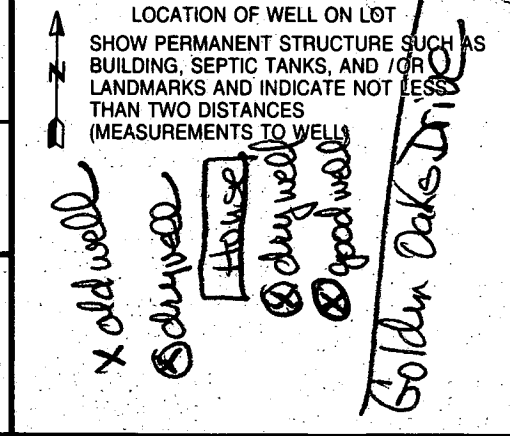 LOCATION OF WELL ON LOT
SHOW PERMANENT STRUCTURE SUCH AS
BUILDING, SEPTIC TANKS, AND /OR
LANDMARKS AND INDICATE NOT LESS
THAN TWO DISTANCES
(MEASUREMENTS TO WELL)
N
X old well
X drywell
House
X dry well
X good well
Golden Oaks Drive